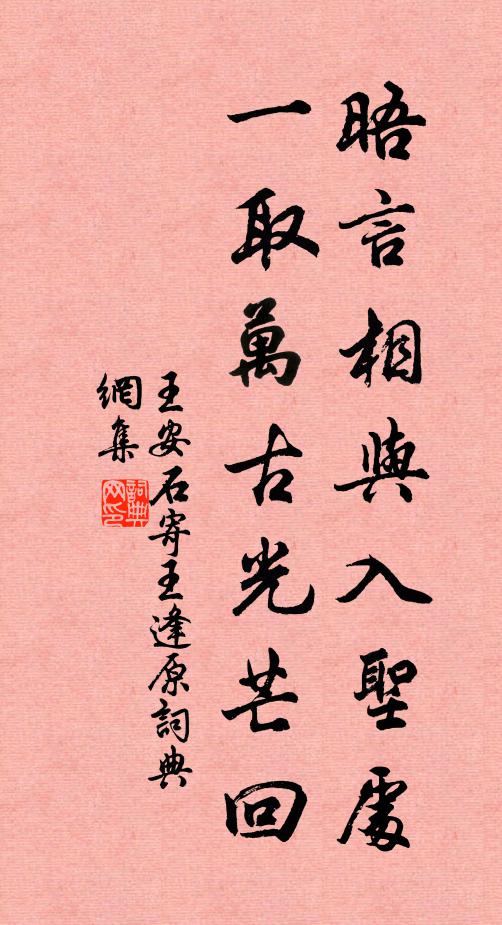 晤言相與入聖處
一取萬古光芒回
王安石寄王逢原詞典
網集
詞典
網印